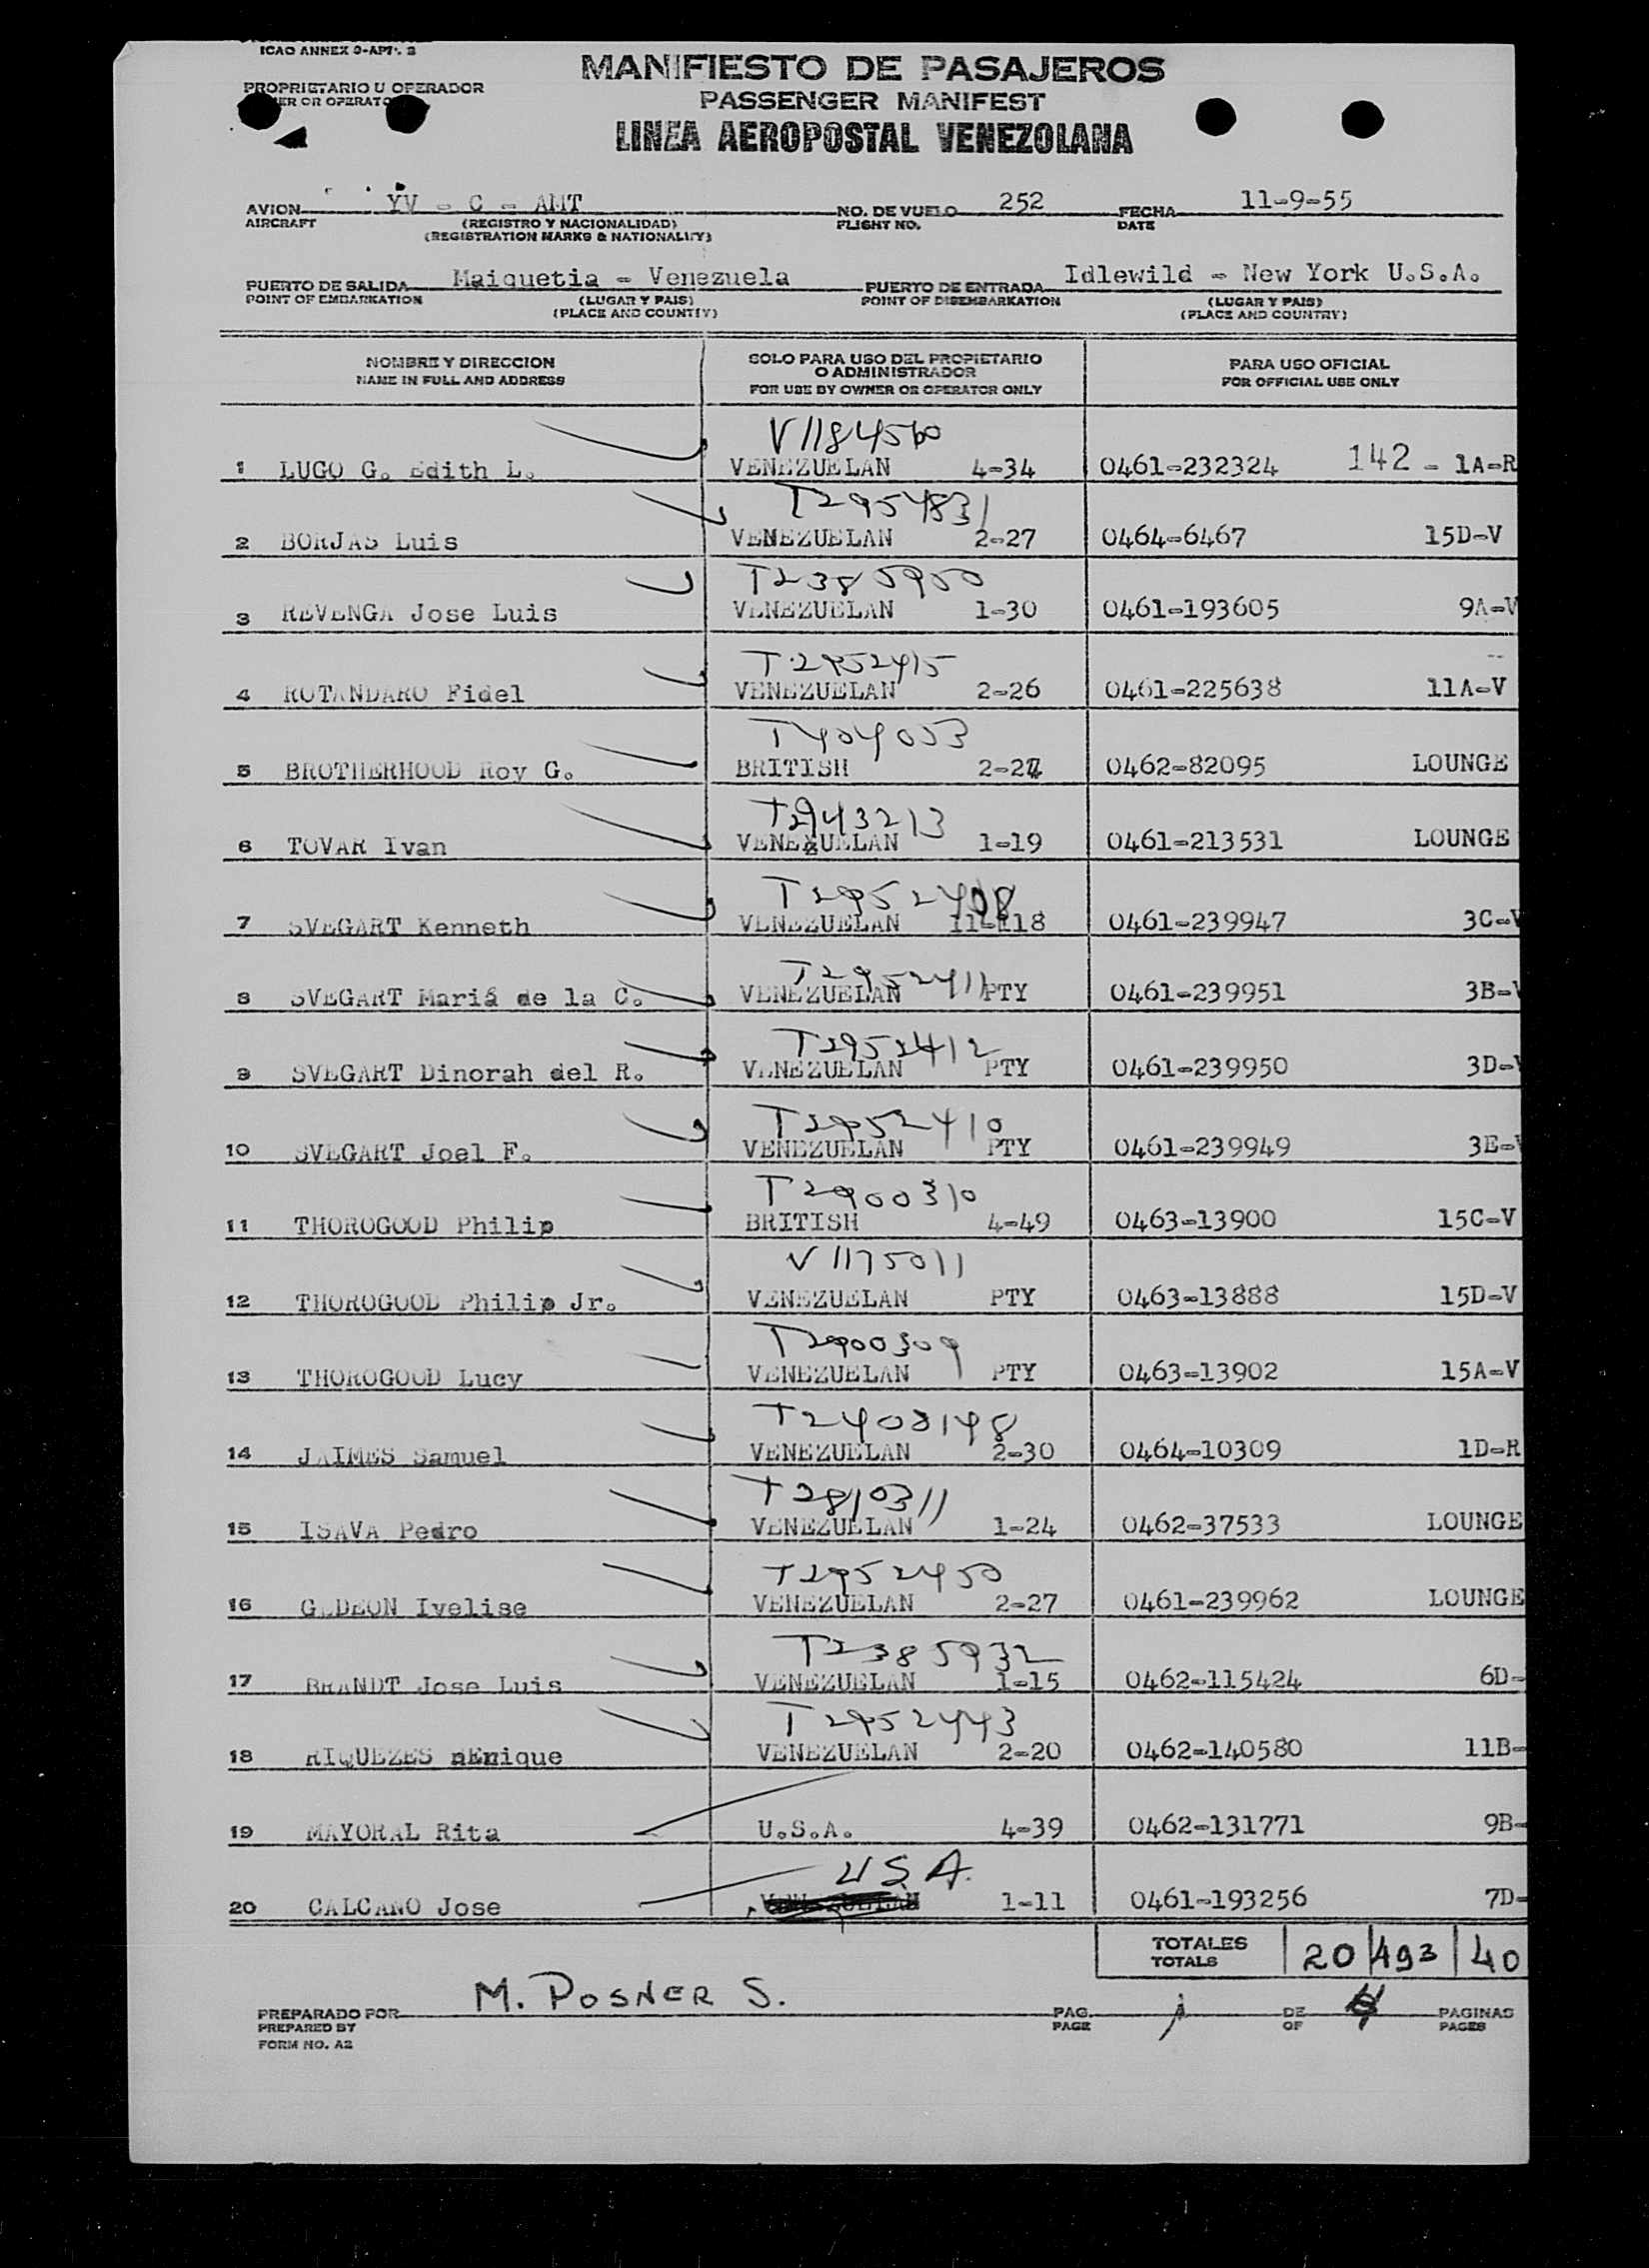 ICAO ANNEX 9-APP. 2
MANIFIESTO DE PASAJEROS
PROPRIETARIO U OPERADOR
OR OPERATOR
PASSENGER MANIFEST
LINEA AEROPOSTAL VENEZOLANA
AVION YV - C - AMT NO. DE VUELO 252 FECHA 11-9-55
AIRCRAFT (REGISTRO Y NACIONALIDAD) FLIGHT NO. DATE
(REGISTRATION MARKS & NATIONALITY)
PUERTO DE SALIDA Maiquetia - Venezuela PUERTO DE ENTRADA Idlewild - New York U.S.A.
POINT OF EMBARKATION (LUGAR Y PAIS) POINT OF DISEMBARKATION (LUGAR Y PAIS)
(PLACE AND COUNTRY) (PLACE AND COUNTRY)
NOMBRE Y DIRECCION SOLO PARA USO DEL PROPIETARIO PARA USO OFICIAL
NAME IN FULL AND ADDRESS O ADMINISTRADOR FOR OFFICIAL USE ONLY
FOR USE BY OWNER OR OPERATOR ONLY
V1184560
1 LUGO G. Edith L. VENEZUELAN 4-34 0461-232324 142 - 1A-R
T2954831
2 BORJAS Luis VENEZUELAN 2-27 0464-6467 15D-V
T2385950
3 REVENGA Jose Luis VENEZUELAN 1-30 0461-193605 9A-V
T2952415
4 ROTANDARO Fidel VENEZUELAN 2-26 0461-225638 11A-V
T404053
5 BROTHERHOOD Roy G. BRITISH 0462-82095 LOUNGE
T2943213
6 TOVAR Ivan VENEZUELAN 1-19 0461-213531 LOUNGE
T2952408
7 SVEGART Kenneth VENEZUELAN 0461-239947 3C-V
T2952411
8 SVEGART Mariá de la C. VENEZUELAN PTY 0461-239951 3B-V
T2952412
9 SVEGART Dinorah del R. VENEZUELAN PTY 0461-239950 3D-V
T2952410
10 SVEGART Joel F. VENEZUELAN PTY 0461-239949 3E-V
T2900310
11 THOROGOOD Philip BRITISH 4-49 0463-13900 15C-V
V1175011
12 THOROGOOD Philip Jr. VENEZUELAN PTY 0463-13888 15D-V
T2900309
13 THOROGOOD Lucy VENEZUELAN PTY 0463-13902 15A-V
T2403148
14 JAIMES Samuel VENEZUELAN 2-30 0464-10309 1D-R
T2810311
15 ISAVA Pedro VENEZUELAN 1-24 0462-37533 LOUNGE
T2952450
16 GEDEON Ivelise VENEZUELAN 2-27 0461-239962 LOUNGE
T2385932
17 BRANDT Jose Luis VENEZUELAN 1-15 0462-115424 6D-
T2952443
18 RIQUEZES nEnique VENEZUELAN 2-20 0462-140580 11B-
19 MAYORAL Rita U.S.A. 4-39 0462-131771 9B-
USA.
20 CALCANO Jose VENEZUELAN 1-11 0461-193256 7D-
TOTALES 20 493 40
TOTALS
PREPARADO POR M. POSNER S. PAG. 1 DE 4 PAGINAS
PREPARED BY PAGE OF PAGES
FORM NO. A2